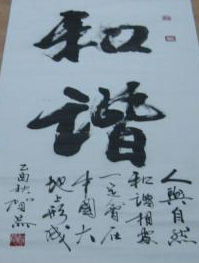 和
谐
人與自然
和谐相處
一定會在
中國大
地上形成
乙酉秋